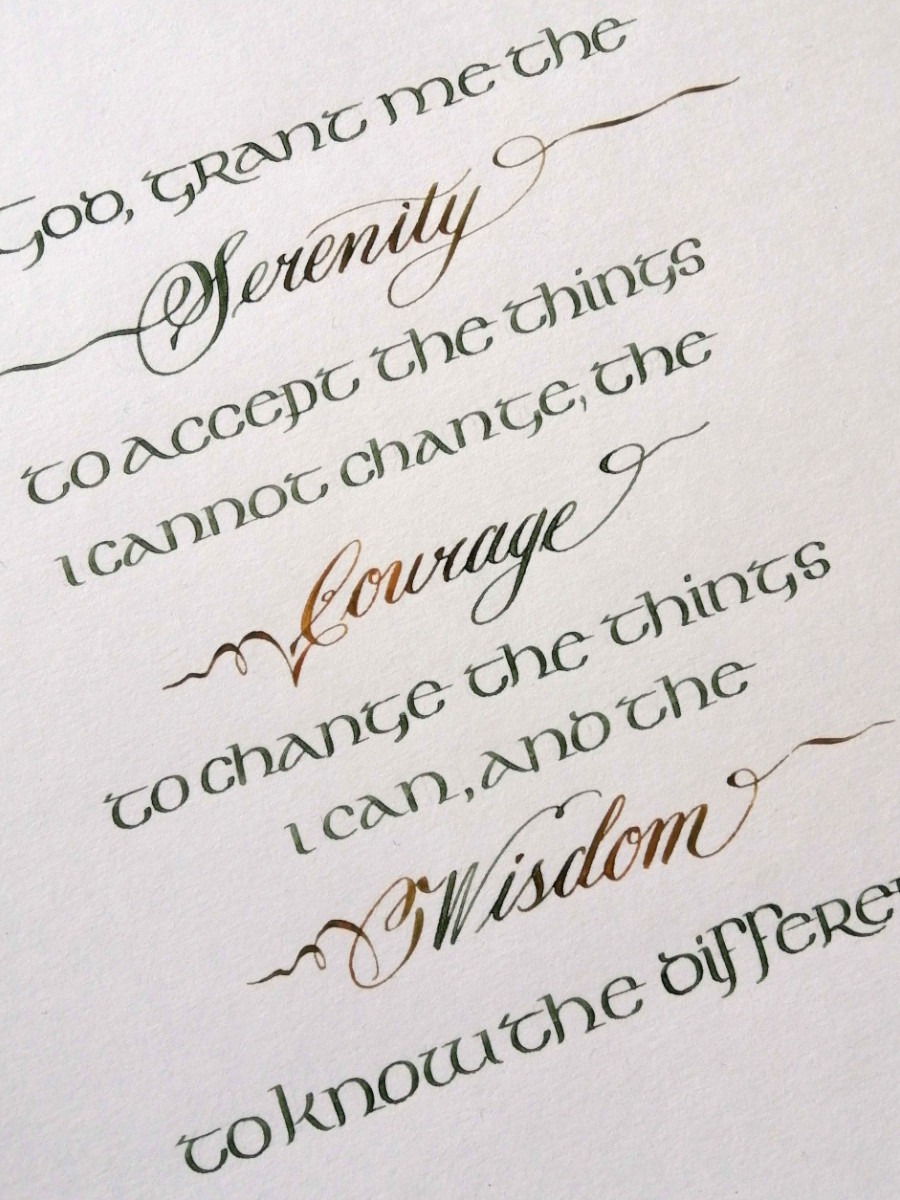 God, grant me the
Serenity
to accept the things
I cannot change, the
Courage
to change the things
I can, and the
Wisdom
to know the differe